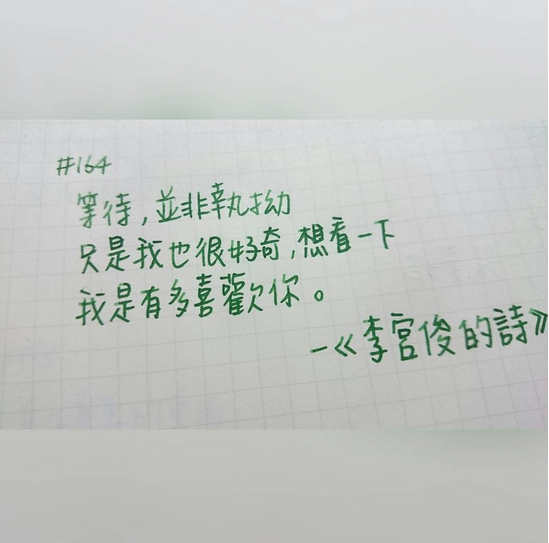 #164
等待,並非執拗
只是我也很好奇,想看一下
我是有多喜歡你。
-《李宮俊的詩》